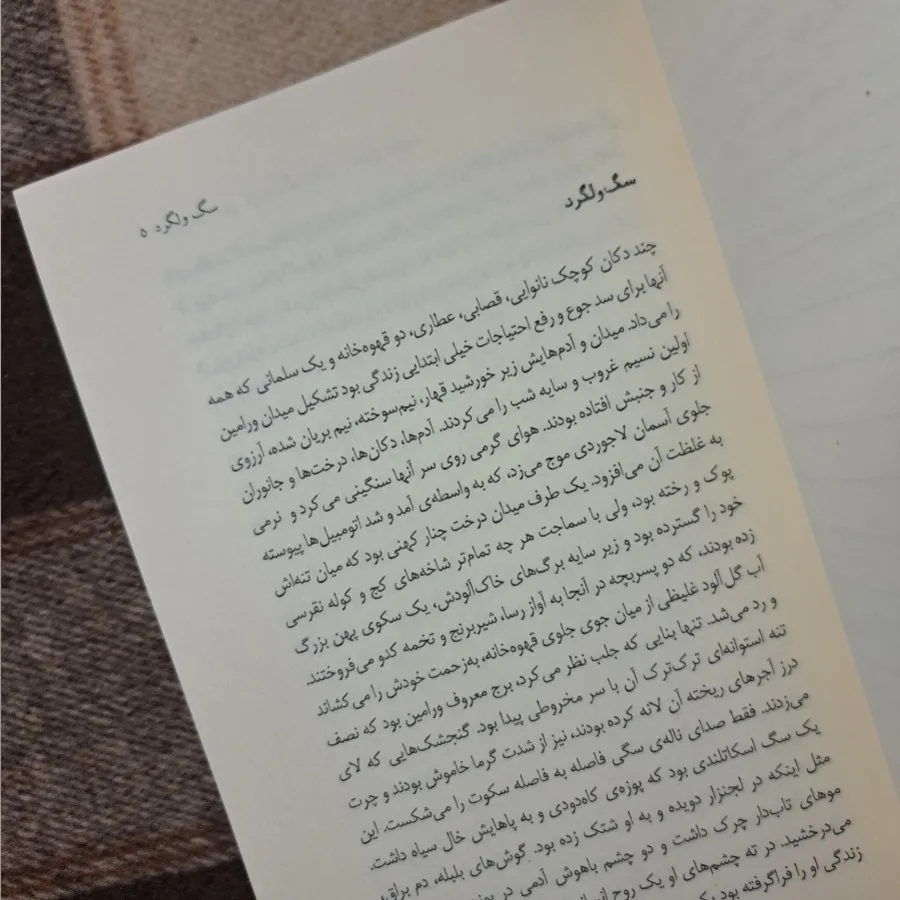 سگ ولگرد ۵
سگ ولگرد
چند دکان کوچک نانوایی، قصابی، عطاری، دو قهوه‌خانه و یک سلمانی که همه
آنها برای سد جوع و رفع احتیاجات خیلی ابتدایی زندگی بود تشکیل میدان ورامین
را می‌داد. میدان و آدم‌هایش زیر خورشید قهار، نیم‌سوخته، نیم بریان شده، آرزوی
اولین نسیم غروب و سایه شب را می‌کردند. آدم‌ها، دکان‌ها، درخت‌ها و جانوران
از کار و جنبش افتاده بودند. هوای گرمی روی سر آنها سنگینی می‌کرد و نرمی
جلوی آسمان لاجوردی موج می‌زد، که به واسطه‌ی آمد و شد اتومبیل‌ها پیوسته
به غلظت آن می‌افزود. یک طرف میدان درخت چنار کهنی بود که میان تنه‌اش
پوک و رخته بود، ولی با سماجت هر چه تمام‌تر شاخه‌های کج و کوله نقرسی
خود را گسترده بود و زیر سایه برگ‌های خاک‌آلودش، یک سکوی پهن بزرگ
زده بودند، که دو پسربچه در آنجا به آواز رسا، شیربرنج و تخمه کدو می‌فروختند.
آب گل‌آلود غلیظی از میان جوی جلوی قهوه‌خانه، به‌زحمت خودش را می‌کشاند
و رد می‌شد. تنها بنایی که جلب نظر می‌کرد، برج معروف ورامین بود که نصف
تنه استوانه‌ای ترک‌ترک آن با سر مخروطی پیدا بود. گنجشک‌هایی که لای
درز آجرهای ریخته آن لانه کرده بودند، نیز از شدت گرما خاموش بودند و چرت
می‌زدند. فقط صدای ناله‌ی سگی فاصله به فاصله سکوت را می‌شکست. این
یک سگ اسکاتلندی بود که پوزه‌ی کاه‌دودی و به پاهایش خال سیاه داشت.
مثل اینکه در لجنزار دویده و به او شتک زده بود. گوش‌های بلبله، دم براق،
موهای تاب‌دار چرک داشت و دو چشم باهوش آدمی در
می‌درخشید. در ته چشم‌های او یک روح
زندگی او را فراگرفته بود